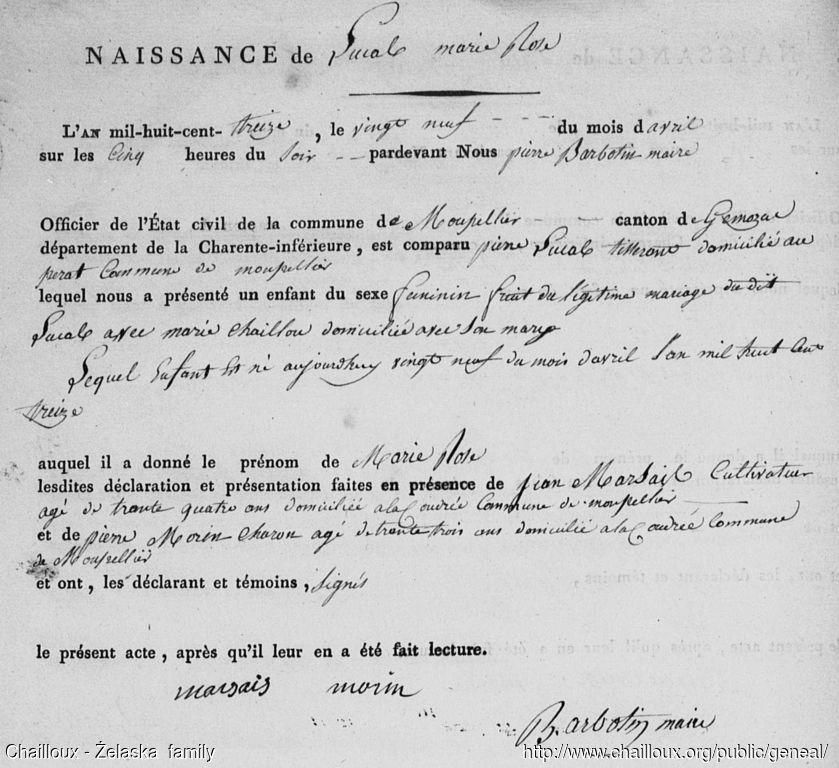 NAISSANCE de Sucal marie Rose
L'AN mil-huit-cent- treize, le vingt neuf - - - du mois d avril
sur les Cinq heures du Soir - - pardevant Nous pierre Barbotin maire
Officier de l'État civil de la commune de Monpellier canton de Gemozac
département de la Charente-inférieure, est comparu pierre Sucal domicilié au
perat Commune de monpellier
lequel nous a présenté un enfant du sexe feminin fruit du légitime mariage du dit
Sucal avec marie chaillou domiciliée avec Son mary
Lequel Enfant Est né aujourdhuy vingt neuf du mois davril l'an mil huit Cent
treize
auquel il a donné le prénom de Marie Rose
lesdites déclaration et présentation faites en présence de jean Marsais Cultivateur
agé de trante quatre ans domiciliée a la Coudrée Commune de monpellier
et de pierre Morin Charon agé de trante trois ans domicilié a la Coudrée Commune
de Monpellier
et ont, les déclarant et témoins, Signés
le présent acte, après qu'il leur en a été fait lecture.
marsais morin
Barbotin maire
Chailloux - Żelaska family http://www.chailloux.org/public/geneal/